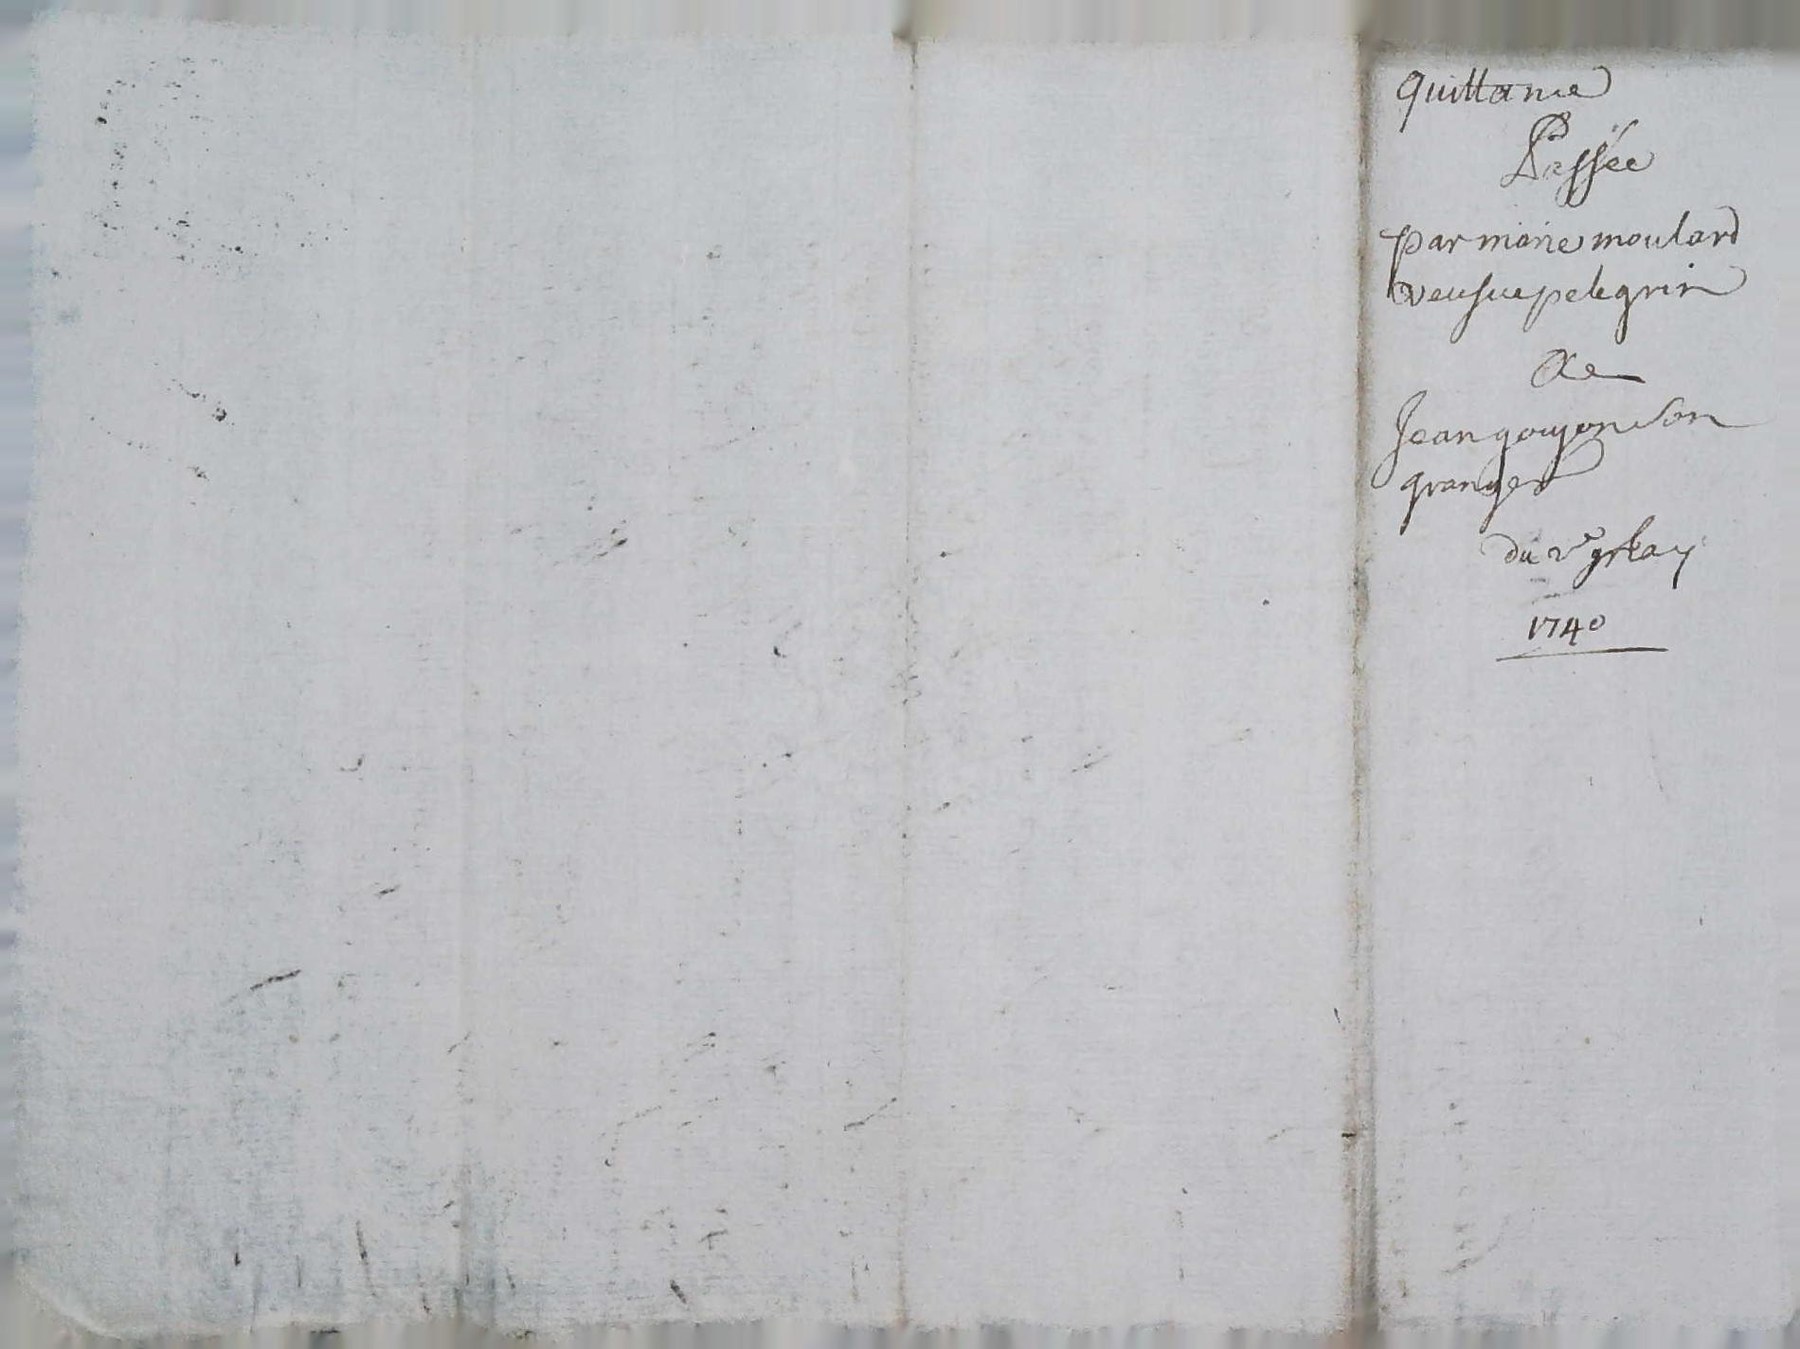 quittance
Passée
par marie moulard
veufue pelegrin
De
Jean goujon son
granger
du may
1740